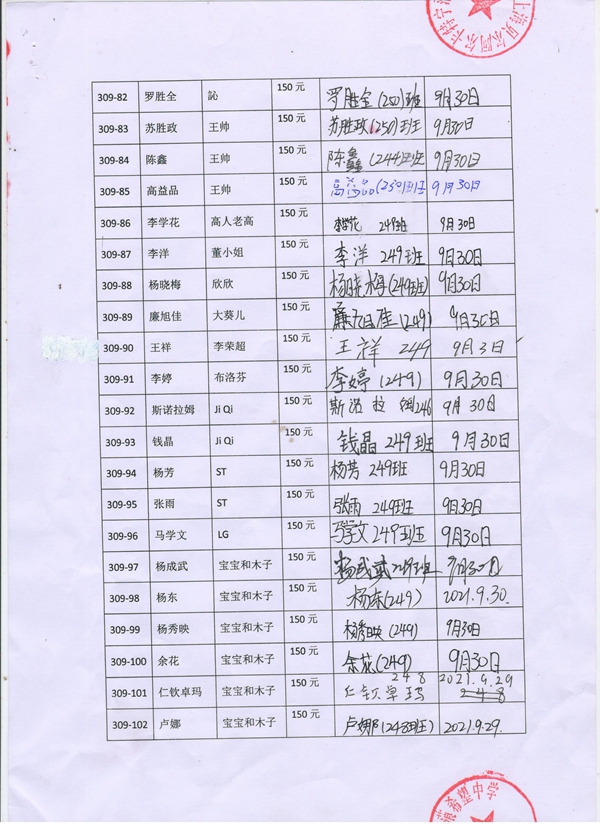 上海贝尔阿尔卡特宁
309-82 罗胜全 訫 150 元 罗胜全(250)班 9月30日
309-83 苏胜政 王帅 150 元 苏胜政(250)班 9月30日
309-84 陈鑫 王帅 150 元 陈鑫(244)班 9月30日
309-85 高益品 王帅 150 元 高益品(250)班 9月30日
309-86 李学花 高人老高 150 元 李学花 249班 9月30日
309-87 李洋 董小姐 150 元 李洋 249班 9月30日
309-88 杨晓梅 欣欣 150 元 杨晓梅(249班) 9月30日
309-89 廉旭佳 大葵儿 150 元 廉旭佳(249) 9月30日
309-90 王祥 李荣超 150 元 王祥 249 9月3日
309-91 李婷 布洛芬 150 元 李婷(249) 9月30日
309-92 斯诺拉姆 Ji Qi 150 元 斯洛拉姆246 9月30日
309-93 钱晶 Ji Qi 150 元 钱晶 249班 9月30日
309-94 杨芳 ST 150 元 杨芳 249班 9月30日
309-95 张雨 ST 150 元 张雨 249班 9月30日
309-96 马学文 LG 150 元 马学文 249班 9月30日
309-97 杨成武 宝宝和木子 150 元 杨成武 249班 9月30日
309-98 杨东 宝宝和木子 150 元 杨东(249) 2021.9.30.
309-99 杨秀映 宝宝和木子 150 元 杨秀映(249) 9月30日
309-100 余花 宝宝和木子 150 元 余花(249) 9月30日
309-101 仁钦卓玛 宝宝和木子 150 元 仁钦卓玛 248 2021.9.29 248
309-102 卢娜 宝宝和木子 150 元 卢娜(248班) 2021.9.29.
希望中学